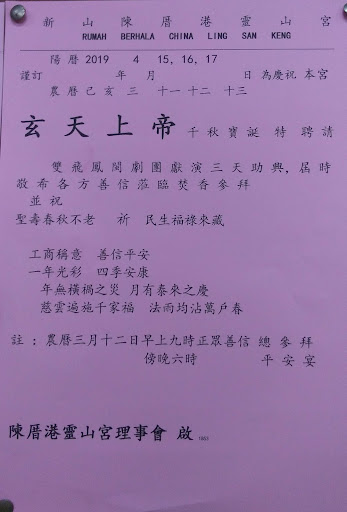 新山陳厝港靈山宮
RUMAH BERHALA CHINA LING SAN KENG
陽曆 2019 4 15, 16, 17
謹訂 年 月 日 為慶祝 本宮
農曆己亥 三 十一 十二 十三
玄天上帝 千秋寶誕 特 聘請
雙飛鳳閩劇團獻演三天助興, 屆時
敬希各方善信蒞臨焚香參拜
並祝
聖壽春秋不老 祈 民生福祿來藏
工商稱意 善信平安
一年光彩 四季安康
年無橫禍之災 月有泰來之慶
慈雲遍施千家福 法雨均沾萬戶春
註 : 農曆三月十二日早上九時正眾善信 總 參 拜
傍晚六時 平 安 宴
陳厝港靈山宮理事會 啟